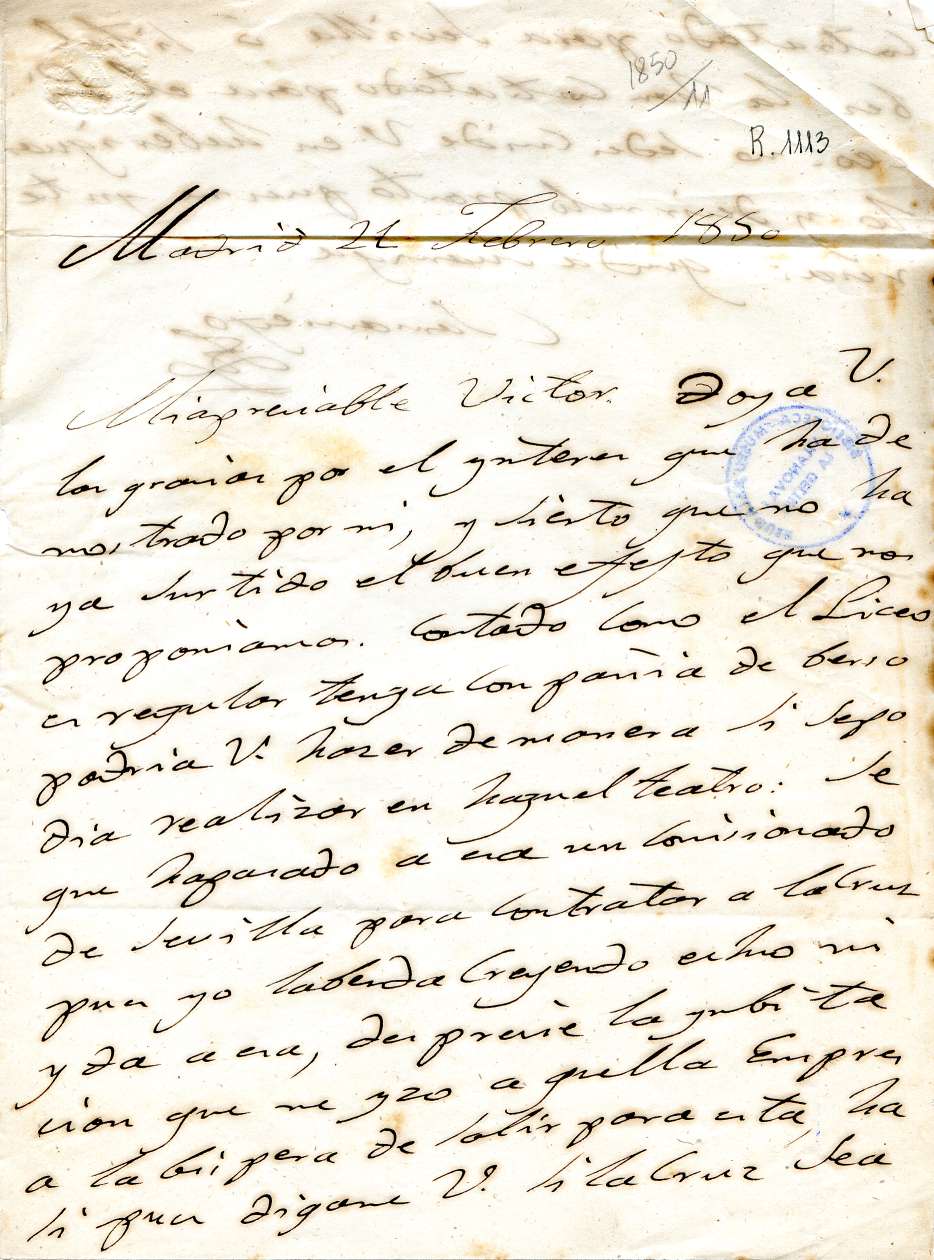 1850
/11
R. 1113
Madrid 21 Febrero 1850
Mi apreciable Victor. Doy a V.
las gracias por el ynteres que ha de
mostrado por mi, y siento que no ha
ya surtido el buen efecto que nos
proponiamos. Contado como el Liceo
es regular tenga compañia de berso
podria V. hazer de manera si sepo
dia realizar en haquel teatro: Se
que hapasado a esa un comisionado
de Sevilla para contratar a la Cruz
pues yo laberda Creyendo echo mi
yda a esa, desprecie la ynbita
cion que me yzo aquella Empresa
a la bispera de salir para esta, ha
si pues digame V. si la Cruz sea